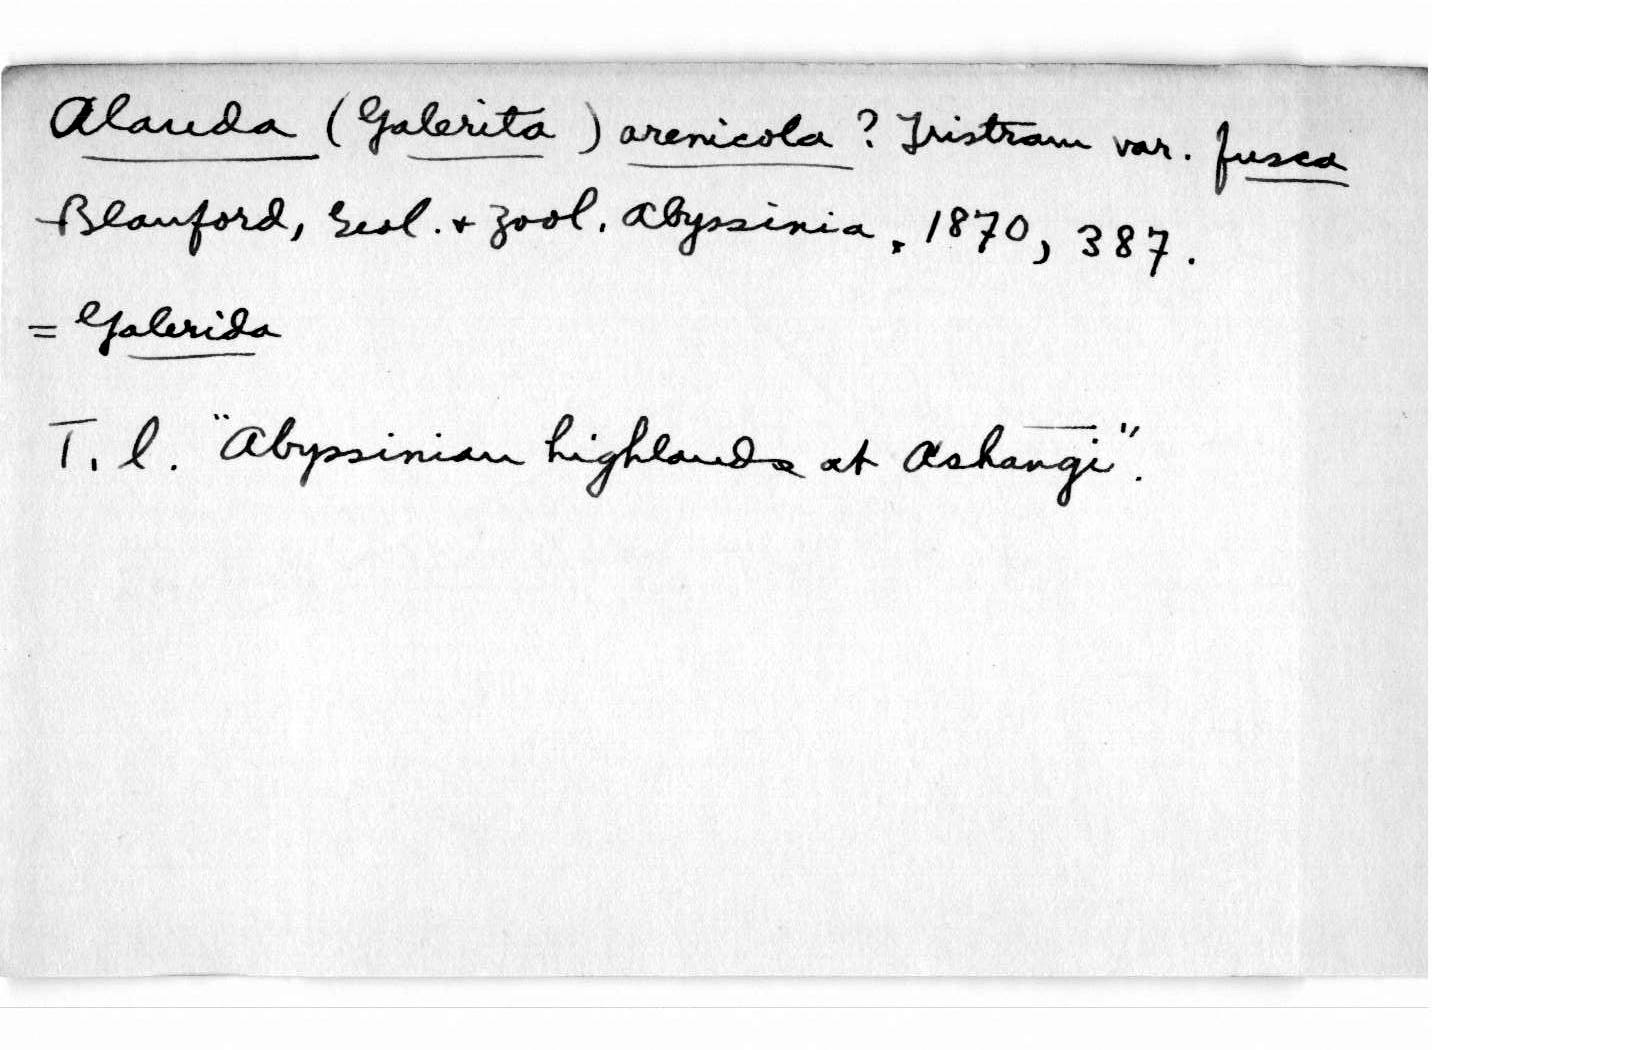 Alauda (Galerita) arenicola? Tristram var. fusca
Blanford, Geol. + Zool. Abyssinia, 1870, 387.
= Galerida
T. l. "Abyssinian highlands at Ashangi".